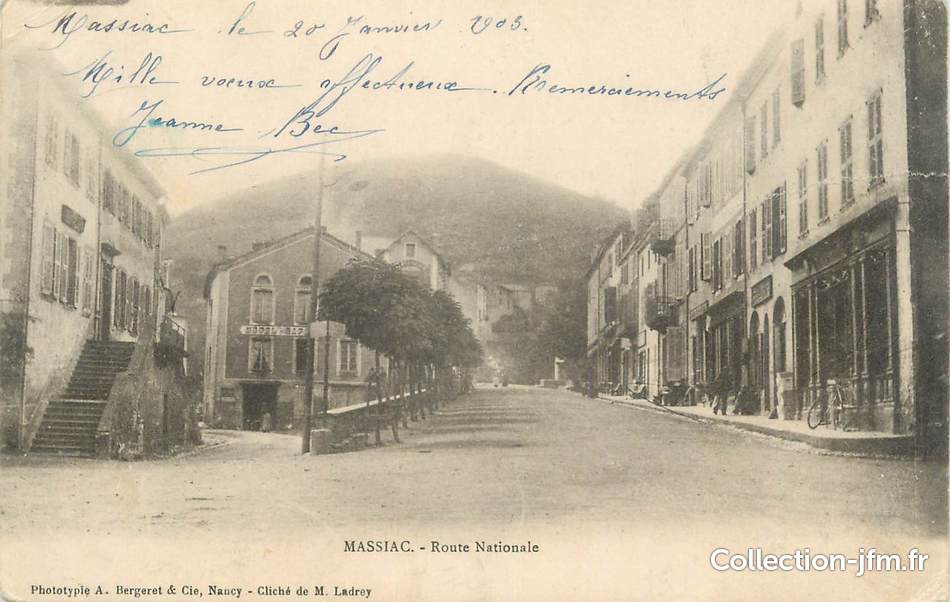 Massiac le 20 Janvier 1903.
Mille voeux affectueux. Remerciements
Jeanne Bec
HOTEL
MASSIAC. - Route Nationale
Collection-jfm.fr
Phototypie A. Bergeret & Cie, Nancy - Cliché de M. Ladrey